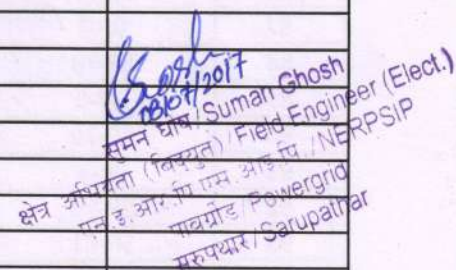 Ghosh
08/07/2017
सुमन घोष / Suman Ghosh
क्षेत्र अभियंता (विद्युत) / Field Engineer (Elect.)
एन.इ.आर.पि.एस.आइ.पि. / NERPSIP
पावरग्रीड / Powergrid
सरुपथार / Sarupathar